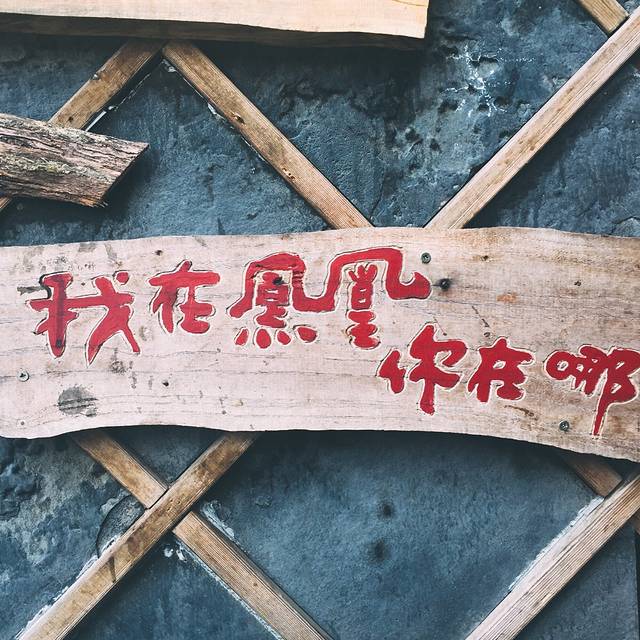 我在鳳凰
你在哪